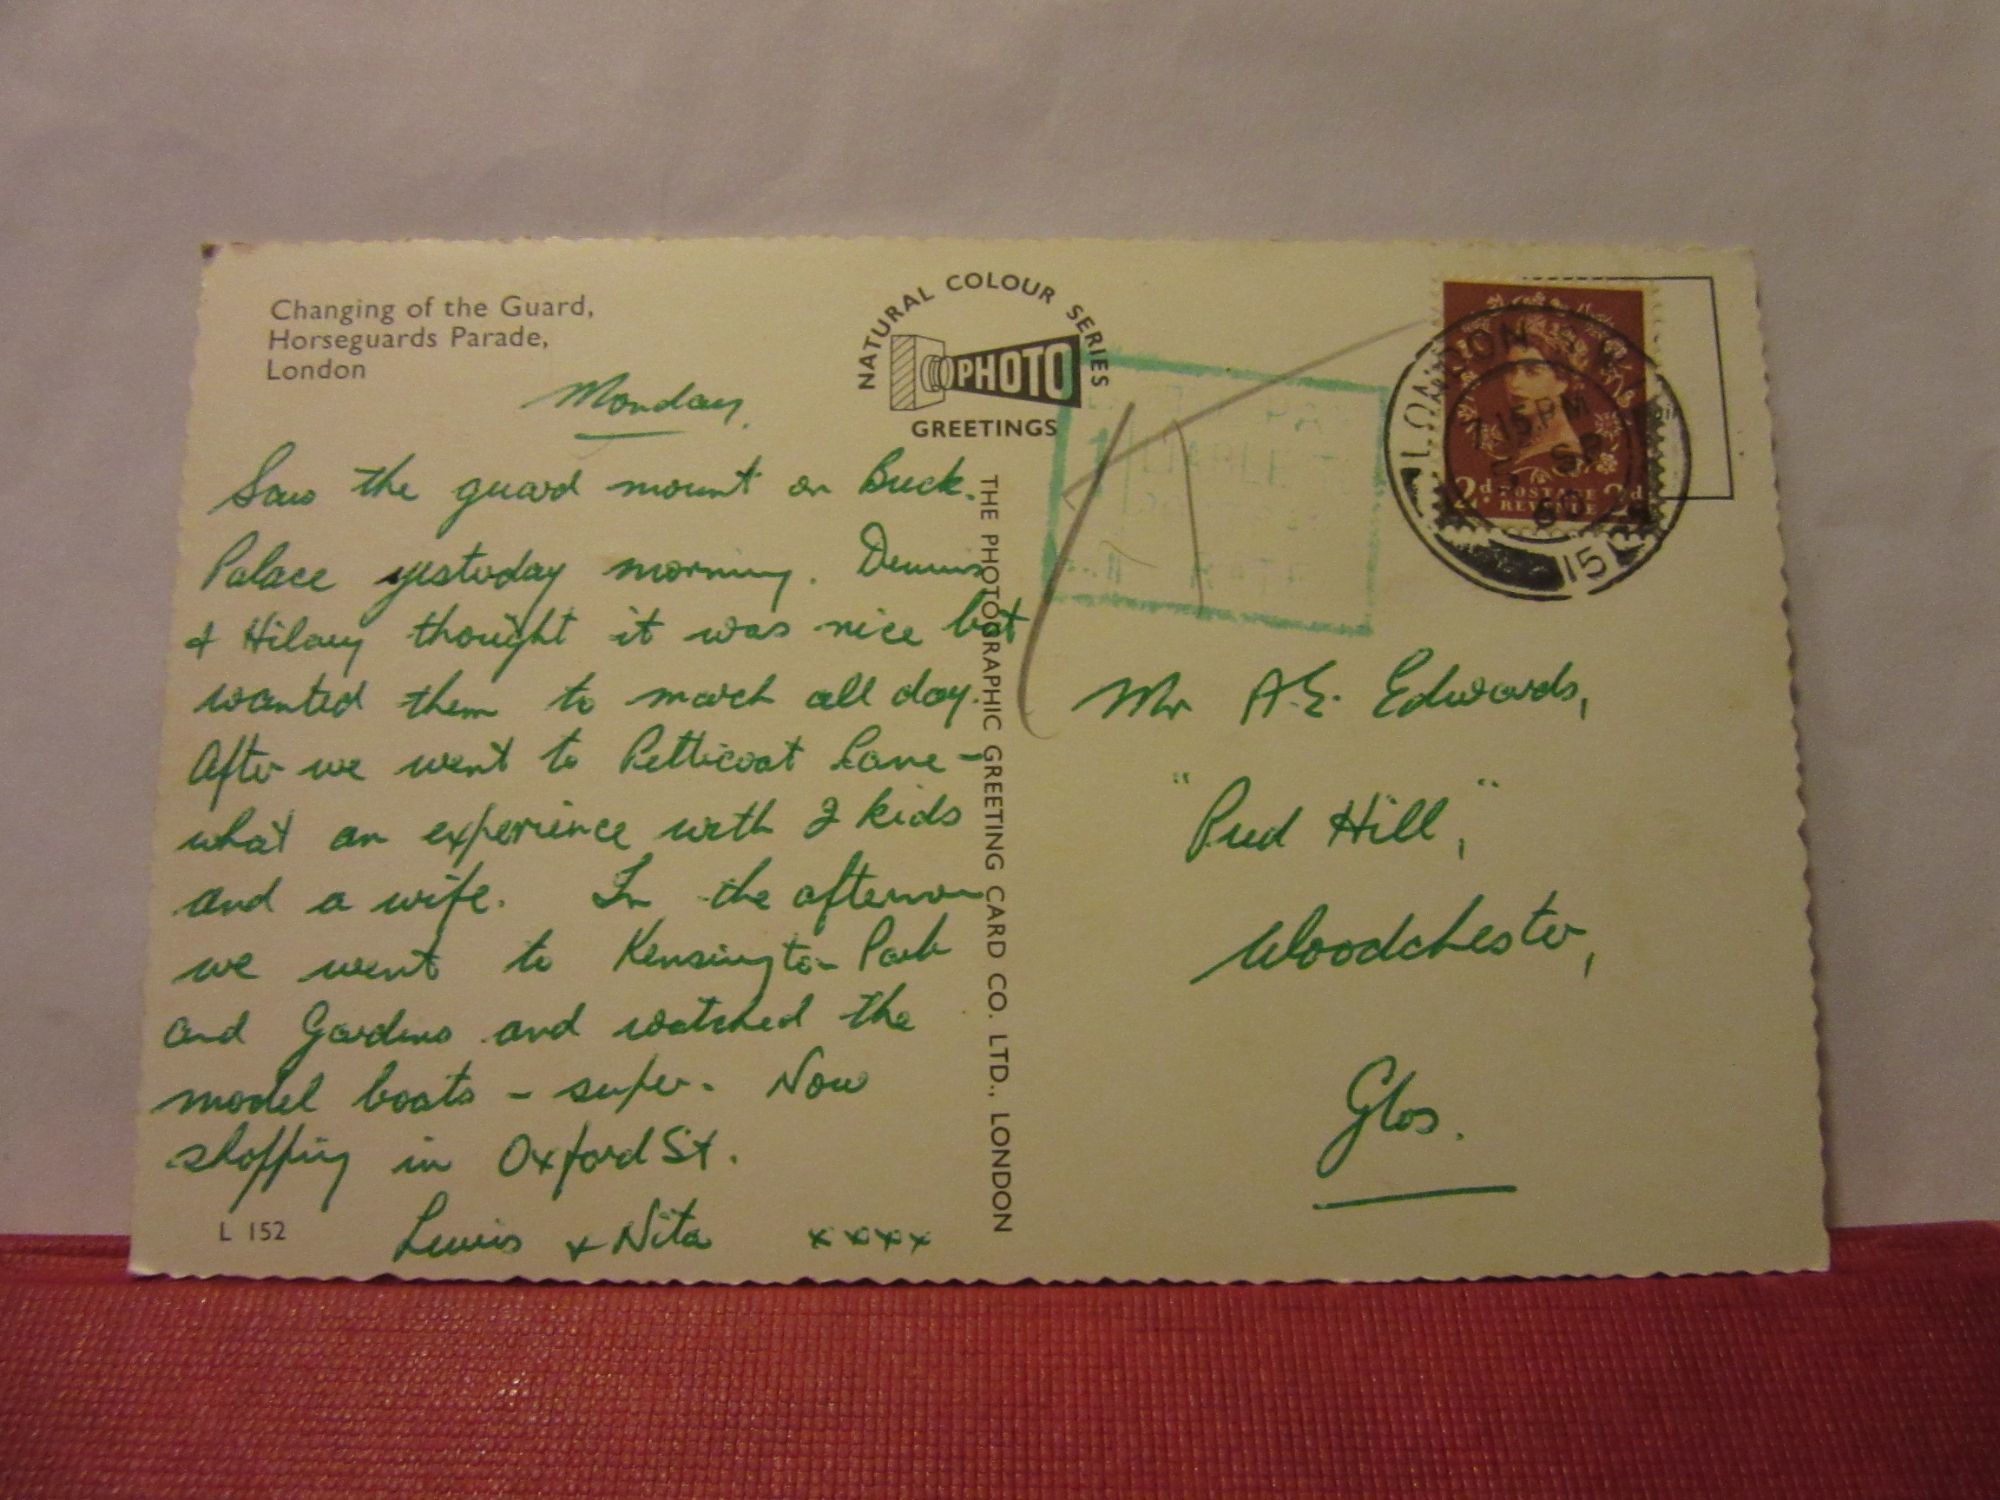 Changing of the Guard,
Horseguards Parade,
London
Monday.
Saw the guard mount on Buck.
Palace yesterday morning. Dennis
& Hilary thought it was nice but
wanted them to march all day.
After we went to Petticoat Lane -
what an experience with 2 kids
and a wife. In the afternoon
we went to Kensington Park
and Gardens and watched the
model boats - super. Now
shopping in Oxford St.
Lewis & Nita xxxx
L 152
NATURAL COLOUR SERIES
PHOTO
GREETINGS
THE PHOTOGRAPHIC GREETING CARD CO. LTD., LONDON
LONDON
7 15 PM
SP
60
15
2d POSTAGE 2d
REVENUE
Mr A.E. Edwards,
"Pud Hill,"
Woodchester,
Glos.